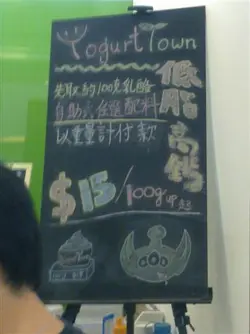 Yogurt Town
低脂高鈣
先取約100克乳酪
自助式任選配料
以重量計付款
$15/100g